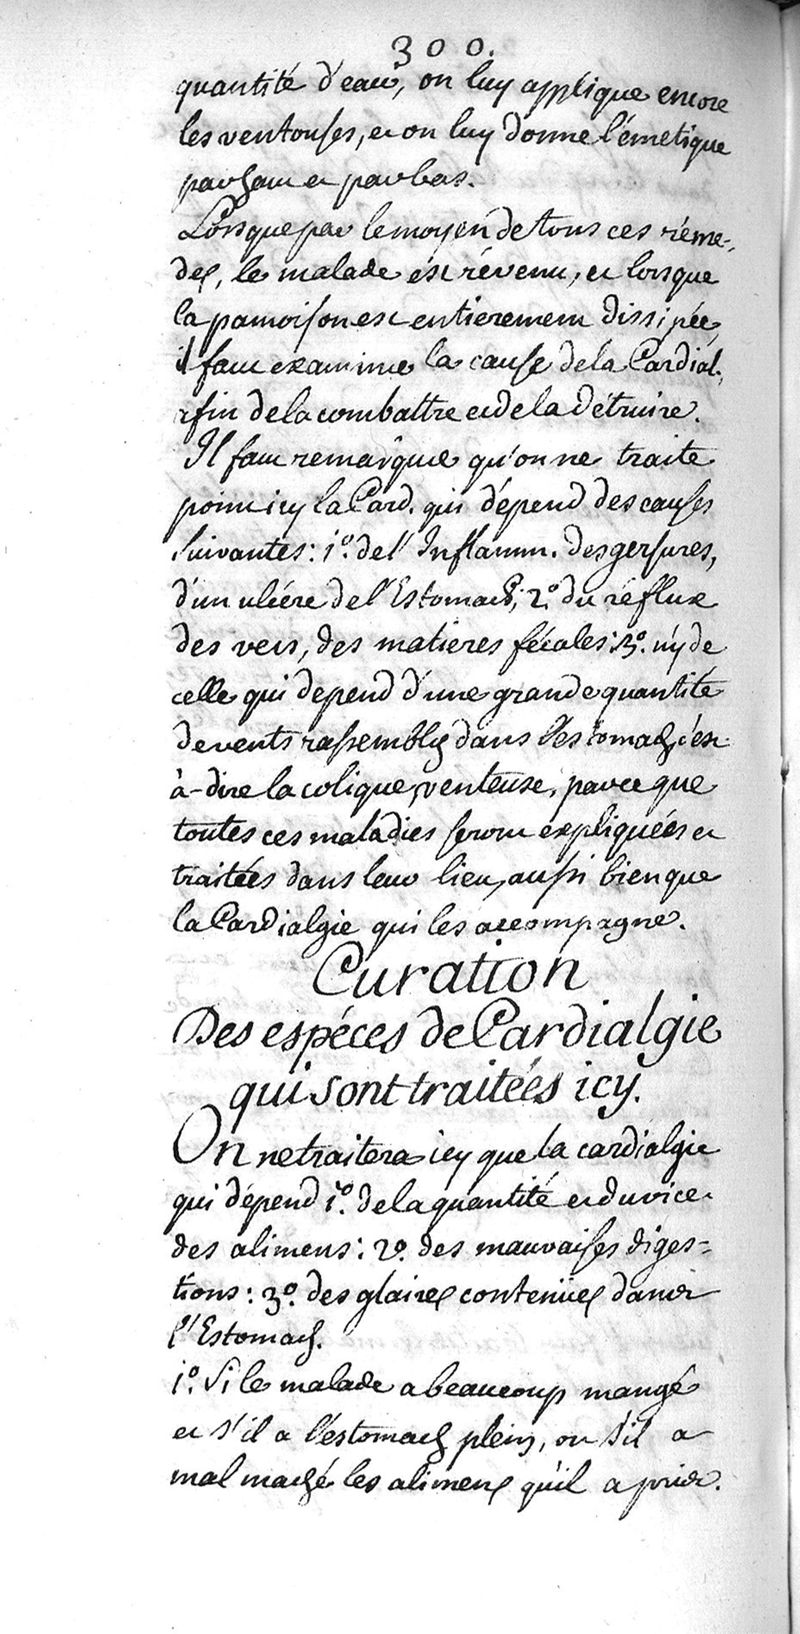 300.
quantité d'eau, on luy applique encore
les ventouses, et on luy donne l'émetique
par haut et par bas.
Lorsque par le moyen de tous ces réme-
des, le malade est révenu, et lorsque
la pamoison est entierement dissipée,
il faut examiner la cause de la Cardial.
afin de la combattre et de la détruire.
Il faut remarquer qu'on ne traite
point icy la Card. qui dépend des causes
suivantes: 1º. de l'Inflamm. des gersures,
d'un ulcére de l'Estomach; 2º. du réflux
des vers, des matieres fécales: 3º. n'y de
celle qui dépend d'une grande quantité
de vents rassemblés dans l'estomach, c'est-
à-dire la colique venteuse, parce que
toutes ces maladies seront expliquées et
traitées dans leur lieu, aussi bien que
la Cardialgie qui les accompagne.
Curation
Des espéces de Cardialgie
qui sont traitées icy.
On ne traitera icy que la cardialgie
qui dépend 1º. de la quantité et du vice
des alimens: 2º. des mauvaises diges=
tions: 3º. des glaires contenües dans
l'Estomach.
1º. Si le malade a beaucoup mangé
et s'il a l'éstomach plein, ou s'il a
mal maché les alimens qu'il a pris.